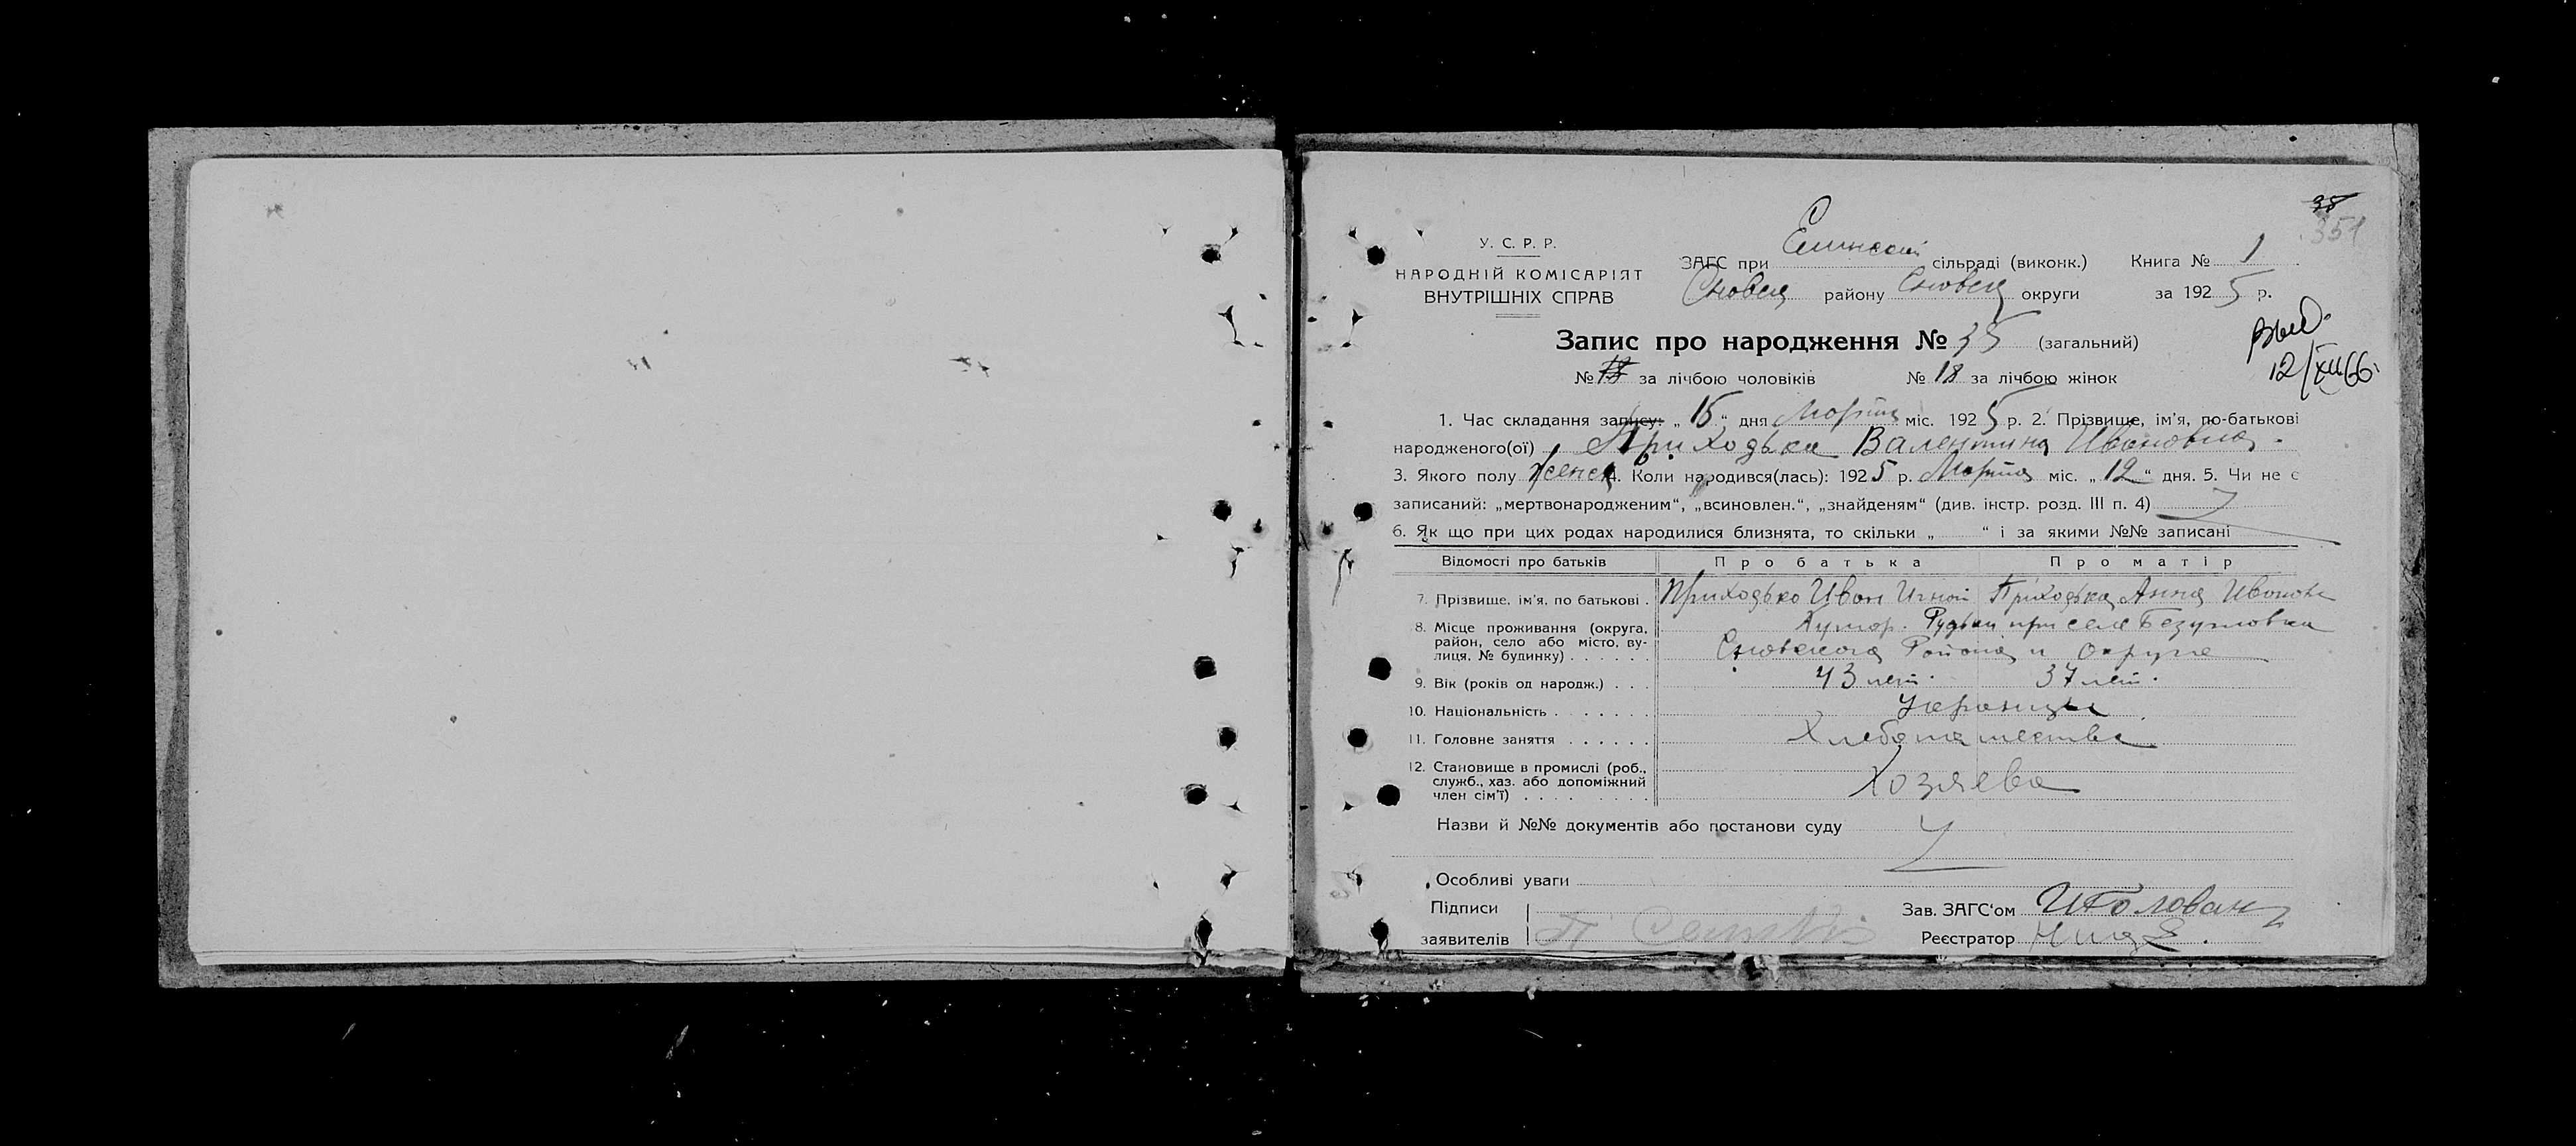 38
351
У. С. Р. Р.
НАРОДНІЙ КОМІСАРІЯТ
ВНУТРІШНІХ СПРАВ
ЗАГС при Елинской сільраді (виконк.) Книга № 1
Сновск району Сновск округи за 1925 р.
Запис про народження № 35 (загальний)
Выд.
12/XII 66.
№ за лічбою чоловіків № 18 за лічбою жінок
1. Час складання запису: „15“ дня Марта міс. 1925 р. 2. Прізвище, ім'я, по-батькові
народженого(ої) Приходька Валентина Ивановна.
3. Якого полу женск 4. Коли народився(лась): 1925 р. Марта міс. „12“ дня. 5. Чи не є
записаний: „мертвонародженим“, „всиновлен.“, „знайденям“ (див. інстр. розд. III п. 4)
6. Як що при цих родах народилися близнята, то скільки „ “ і за якими №№ записані
Відомості про батьків Про батька Про матір
7. Прізвище, ім'я, по батькові . Приходько Иван Приходька Анна Иванов
8. Місце проживання (округа, район, село або місто, вулиця, № будинку) . . . . . . Хутор. Рудьки при селе Безугловка
Сновского Района и округа
9. Вік (років од народж.) . . . 43 лет. 37 лет.
10. Національність . . . . . . . Украинцы
11. Головне заняття . . . . . . Хлебопашество
12. Становище в промислі (роб., служб., хаз. або допоміжний член сім'ї) . . . . . . . . . Хозяева
Назви й №№ документів або постанови суду
Особливі уваги
Підписи
заявителів
Зав. ЗАГС'ом Головань
Реєстратор